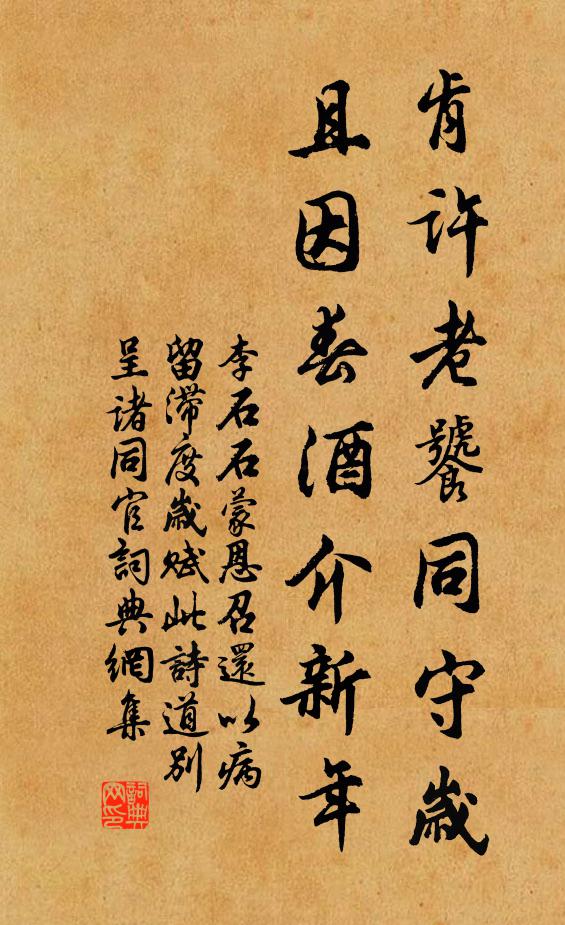 肯許老饕同守歲
且因春酒介新年
李石石蒙恩召還以病
留滯度歲賦此詩道別
呈諸同官詞典網集
詞典网印